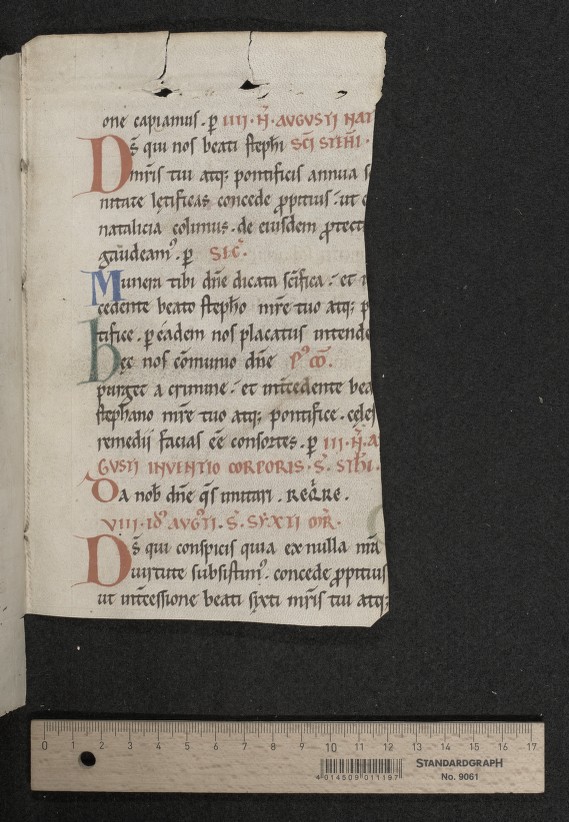 one capiamus. p̲ IIII. Ñ. AVGVSTI NAT
D̅s̅ qui nos beati steph̅i SC̅I STEH̅I.
m̅ris tui atq; pontificis annua s
nitate lętificas concede p̲pitius. ut q
natalicia colimus. de eiusdem p̲tect
gaudeam᷒. p̲ SEC̅.
Munera tibi dn̅e dicata sc̅ifica. et
cedente beato steph̅o m̅re tuo atq; p
tifice. p̲ eadem nos placatus intende
hęc nos co̅munio dn̅e P᷒ CO̅.
purget a crimine. et int̅cedente bea
stephano m̅re tuo atq; pontifice. celes
remedii facias ee̅ consortes. p̲ III. Ñ. A
GVSTI INVENTIO CORPORIS. S̅. STH̅I.
Da nob̅ dn̅e q̅s imitari. REQ̅RE.
VIII. ID᷒ AVG᷒TI. S̅. SYXTI M̅R.
D̅s̅ qui conspicis quia ex nulla n̅ra
uirtute subsistim᷒. concede p̲pitius
ut int̅cessione beati syxti m̅ris tui atq;
0 1 2 3 4 5 6 7 8 9 10 11 12 13 14 15 16 17
4 014509 011197
STANDARDGRAPH
No. 9061